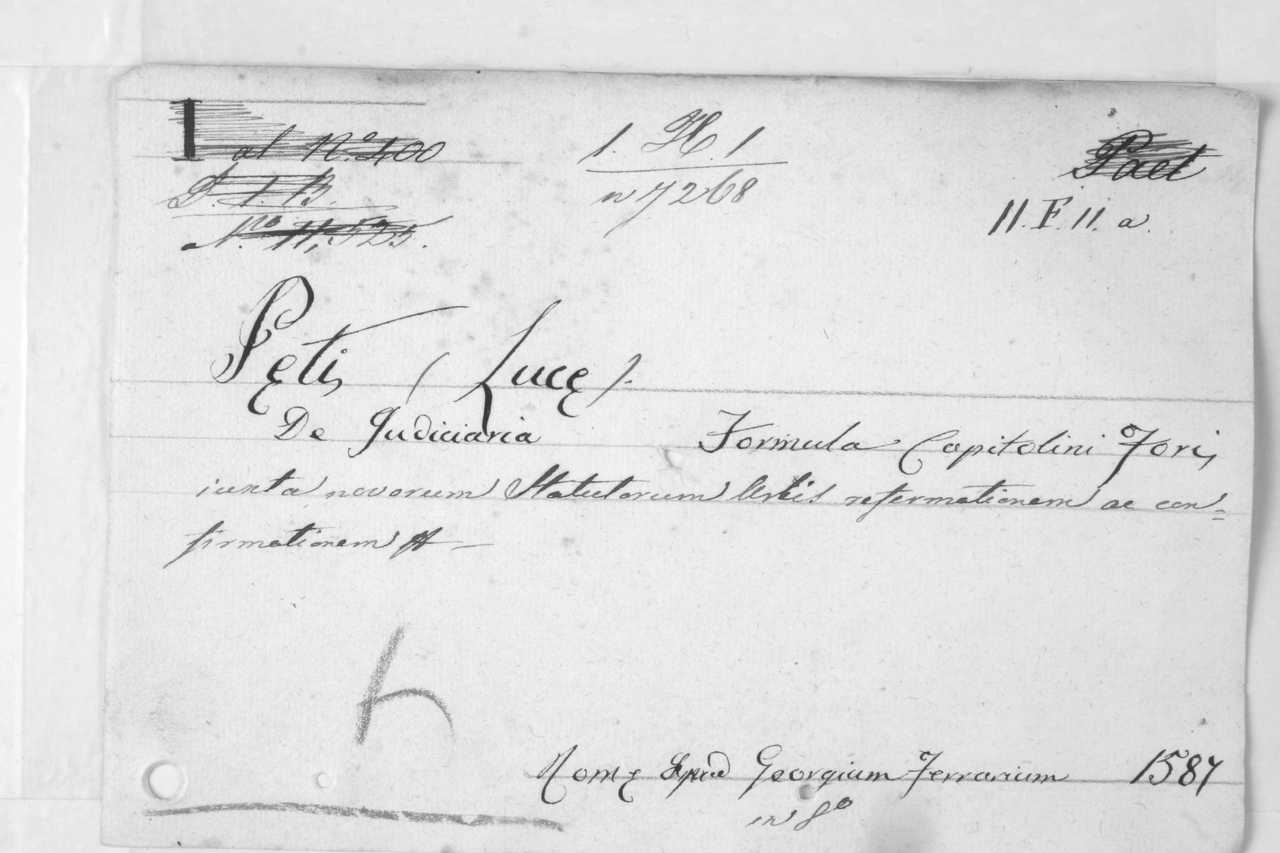 al N.º 400
I. H. I
Paet
P. I. B.
n 7268
N.ro 11,525.
II. F. II. a.
Pęti, (Lucę).
De Judiciaria Formula Capitolini Fori,
iuxta novorum Statutorum Urbis reformationem ac con=
firmationem &
h
Romę Apud Georgium Ferrarium 1587
in 8º